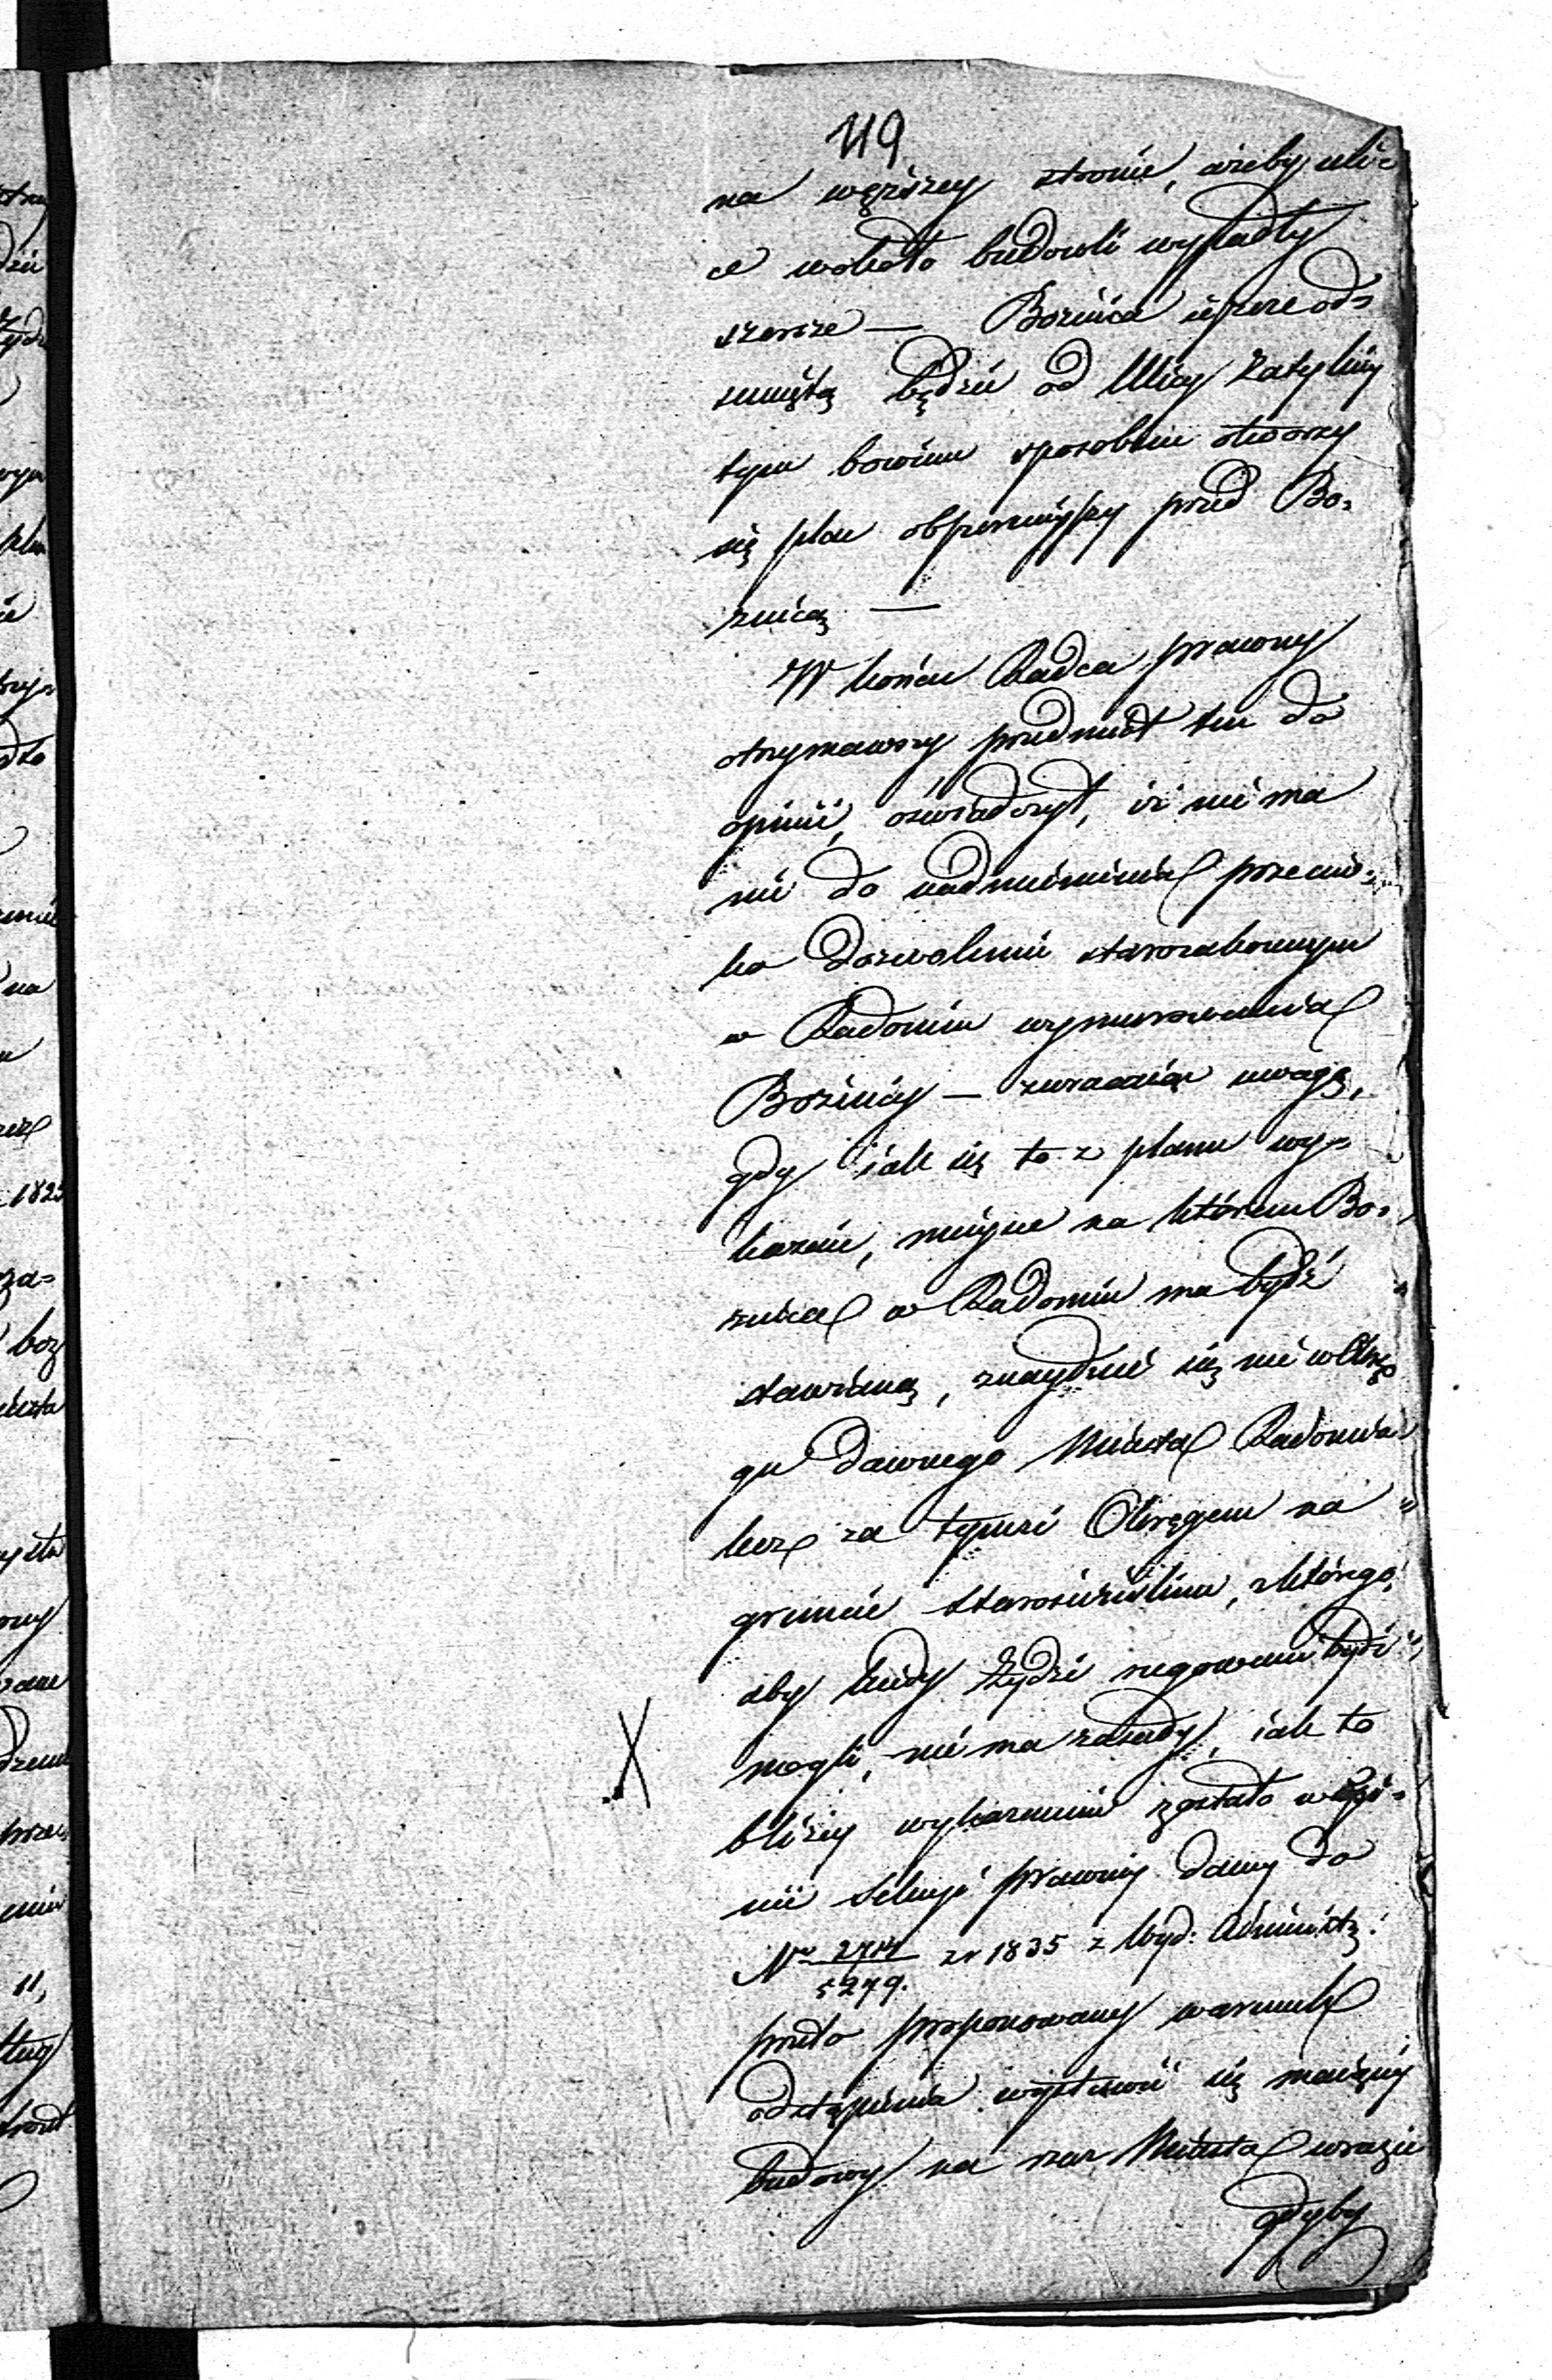 119
na węższey stronie, ażeby uli=
ce wokoło budowli wypadły
szersze — Bożnica ieszcze od=
suniętą będzie od Ulicy Zatylniey
tym bowiem sposobem otworzy
się plac obszernieyszy przed Bo=
żnicą —
W końcu Radca prawny
otrzymawszy przedmiot ten do
opinii, oświadczył, iż nie ma
nic do nadmienienia przeciw=
ko dozwoleniu starozakonnym
w Radomiu wymurowania
Bożnicy — zwracaiąc uwagę,
gdy iak się to z planu wy=
kazuie, mieysce na którem Bo=
żnica w Radomiu ma bydź
stawianą, znayduie się nie w Okrę
gu dawnego Miasta Radomia
lecz za tymże Okręgiem na
gruncie Starościńskim, z którego
aby kiedy Żydzi rugowani bydź
mogli, nie ma zasady, iak to
bliżey wykazanem zostało w Opi=
nii Sekcyi prawney daney do
No 2714/5279. z r 1835 z Wyd: Administr:
przeto proponowany warunek
odstąpienia wystawić się maiącey
budowy na rzecz Miasta w razie
gdyby